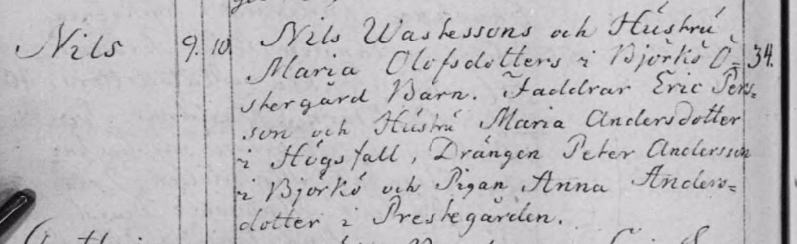 Nils 9. 10. Nils Wastessons och Hústrú
Maria Olofsdotters i Björkö Ö= 34.
stergård Barn. Faddrar Eric Pers=
son och Hústrú Maria Andersdotter
i Högsfall, Drängen Peter Andersson
i Björkö och Pigan Anna Anders=
dotter i Prestegården.